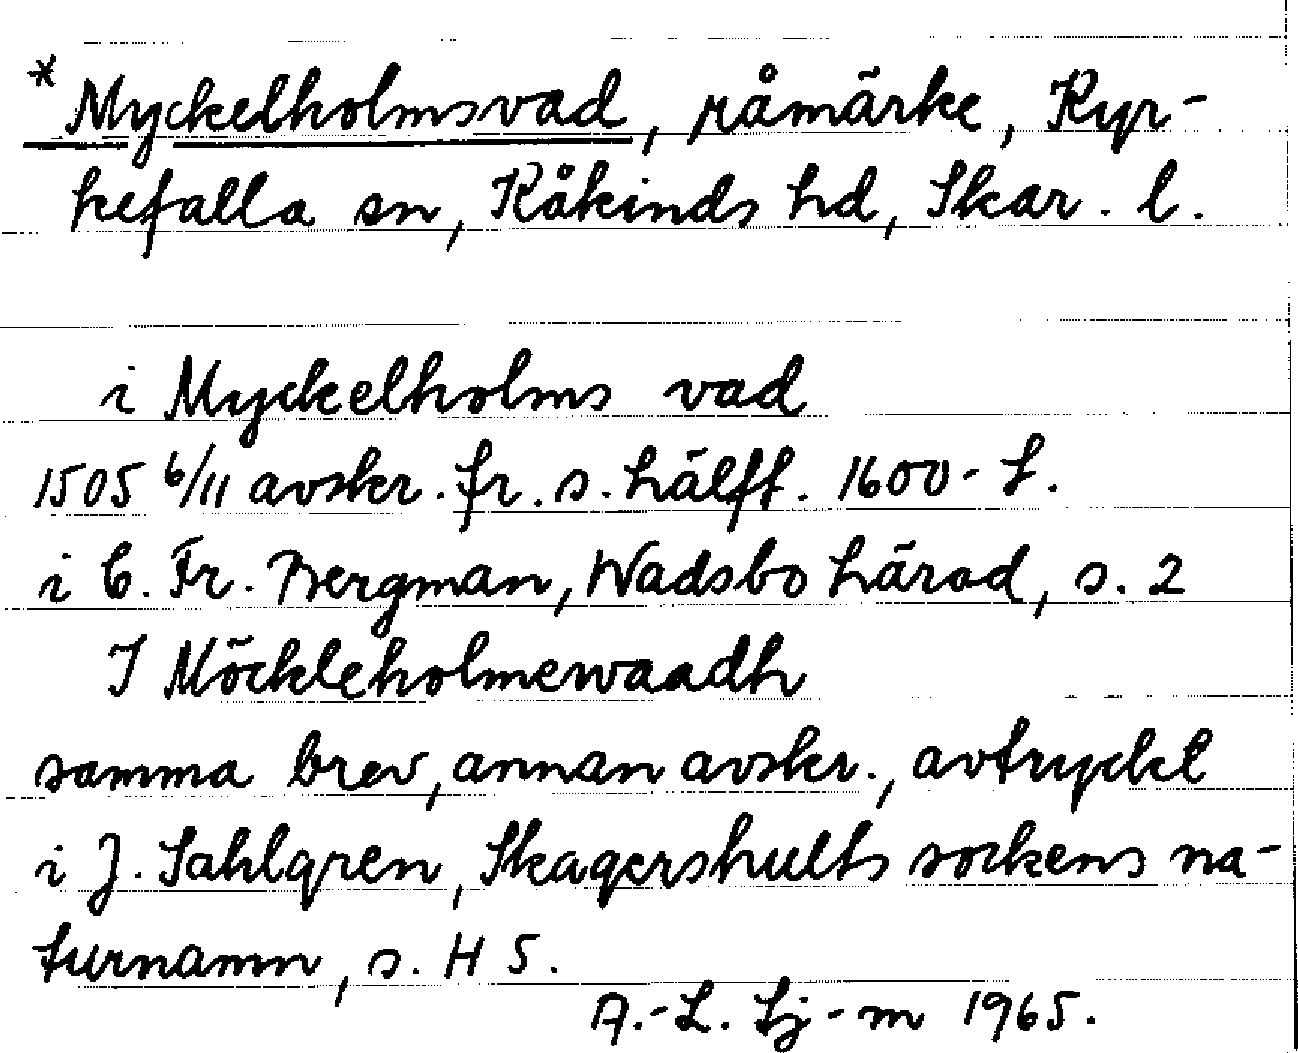 *Myckelholmsvad, råmärke, Kyr-
kefalla sn, Kåkinds hd, Skar. l.
i Myckelholms vad
1505 6/11 avskr. fr. s. hälft. 1600-t.
i C. Fr. Bergman, Wadsbo härad, s. 2
I Möckleholmewaadh
samma brev, annan avskr., avtryckt
i J. Sahlgren, Skagershults sockens na-
turnamn, s. H 5.
A.-L. Lj-m 1965.